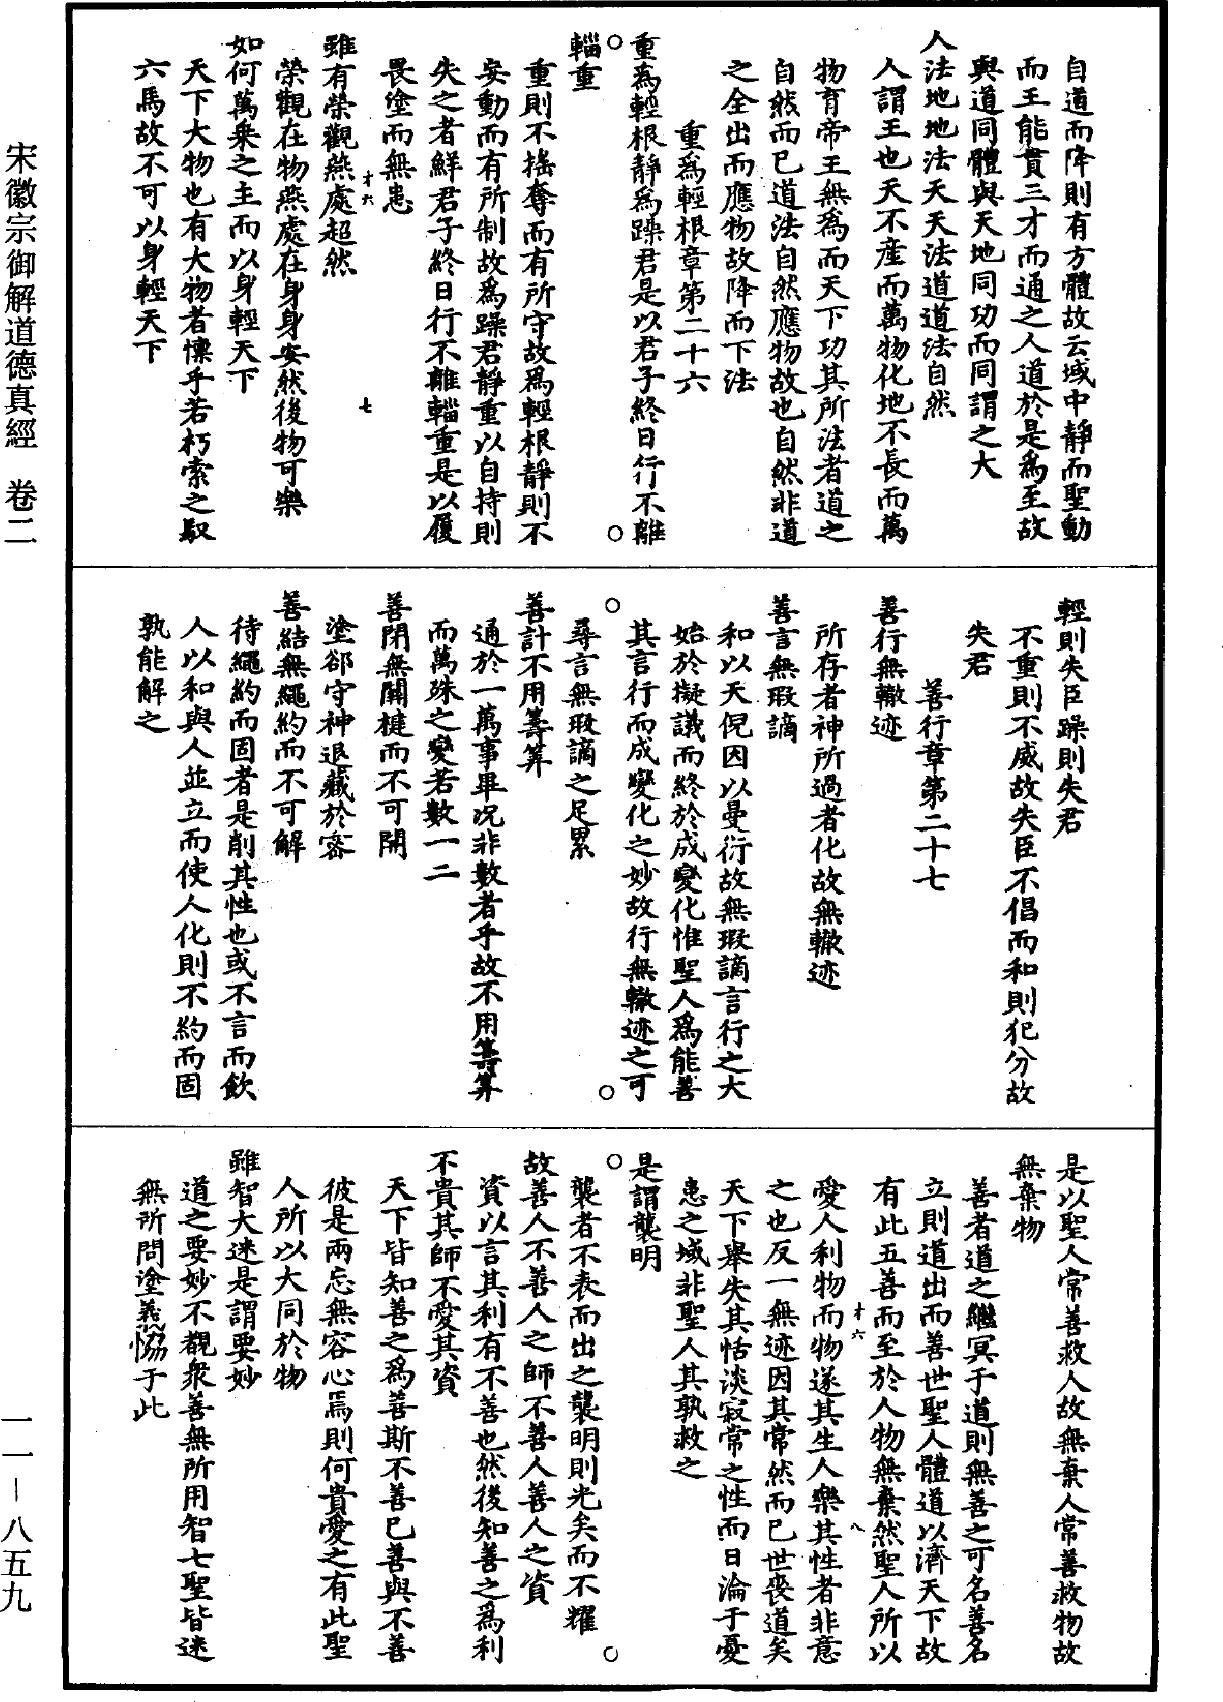 自道而降則有方體故云域中靜而聖動
而王能貫三才而通之人道於是爲至故
與道同體與天地同功而同謂之大
人法地地法天天法道道法自然
人謂王也天不產而萬物化地不長而萬
物育帝王無爲而天下功其所法者道之
自然而已道法自然應物故也自然非道
之全出而應物故降而下法
重爲輕根章第二十六
重爲輕根靜爲躁君是以君子終日行不離
輜重
重則不搖奪而有所守故爲輕根靜則不
妄動而有所制故爲躁君靜重以自持則
失之者鮮君子終日行不離輜重是以履
畏塗而無患
雖有榮觀燕處超然
榮觀在物燕處在身身安然後物可樂
如何萬乘之主而以身輕天下
天下大物也有大物者懍乎若朽索之馭
六馬故不可以身輕天下
輕則失臣躁則失君
不重則不威故失臣不倡而和則犯分故
失君
善行章第二十七
善行無轍迹
所存者神所過者化故無轍迹
善言無瑕謫
和以天倪因以曼衍故無瑕謫言行之大
始於擬議而終於成變化惟聖人爲能善
其言行而成變化之妙故行無轍迹之可
尋言無瑕謫之足累
善計不用籌筭
通於一萬事畢況非數者乎故不用籌筭
而萬殊之變若數一二
善閉無關楗而不可開
塗郤守神退藏於密
善結無繩約而不可解
待繩約而固者是削其性也或不言而飲
人以和與人並立而使人化則不約而固
孰能解之
是以聖人常善救人故無棄人常善救物故
無棄物
善者道之繼冥于道則無善之可名善名
立則道出而善世聖人體道以濟天下故
有此五善而至於人物無棄然聖人所以
愛人利物而物遂其生人樂其性者非意
之也反一無迹因其常然而已世喪道矣
天下舉失其恬淡寂常之性而日淪于憂
患之域非聖人其孰救之
是謂襲明
襲者不表而出之襲明則光矣而不耀
故善人不善人之師不善人善人之資
資以言其利有不善也然後知善之爲利
不貴其師不愛其資
天下皆知善之爲善斯不善已善與不善
彼是兩忘無容心焉則何貴愛之有此聖
人所以大同於物
雖智大迷是謂要妙
道之要妙不覩衆善無所用智七聖皆迷
無所問塗義恊于此
才六
七
才六
八
宋徽宗御解道德真經 卷二
一一－八五九